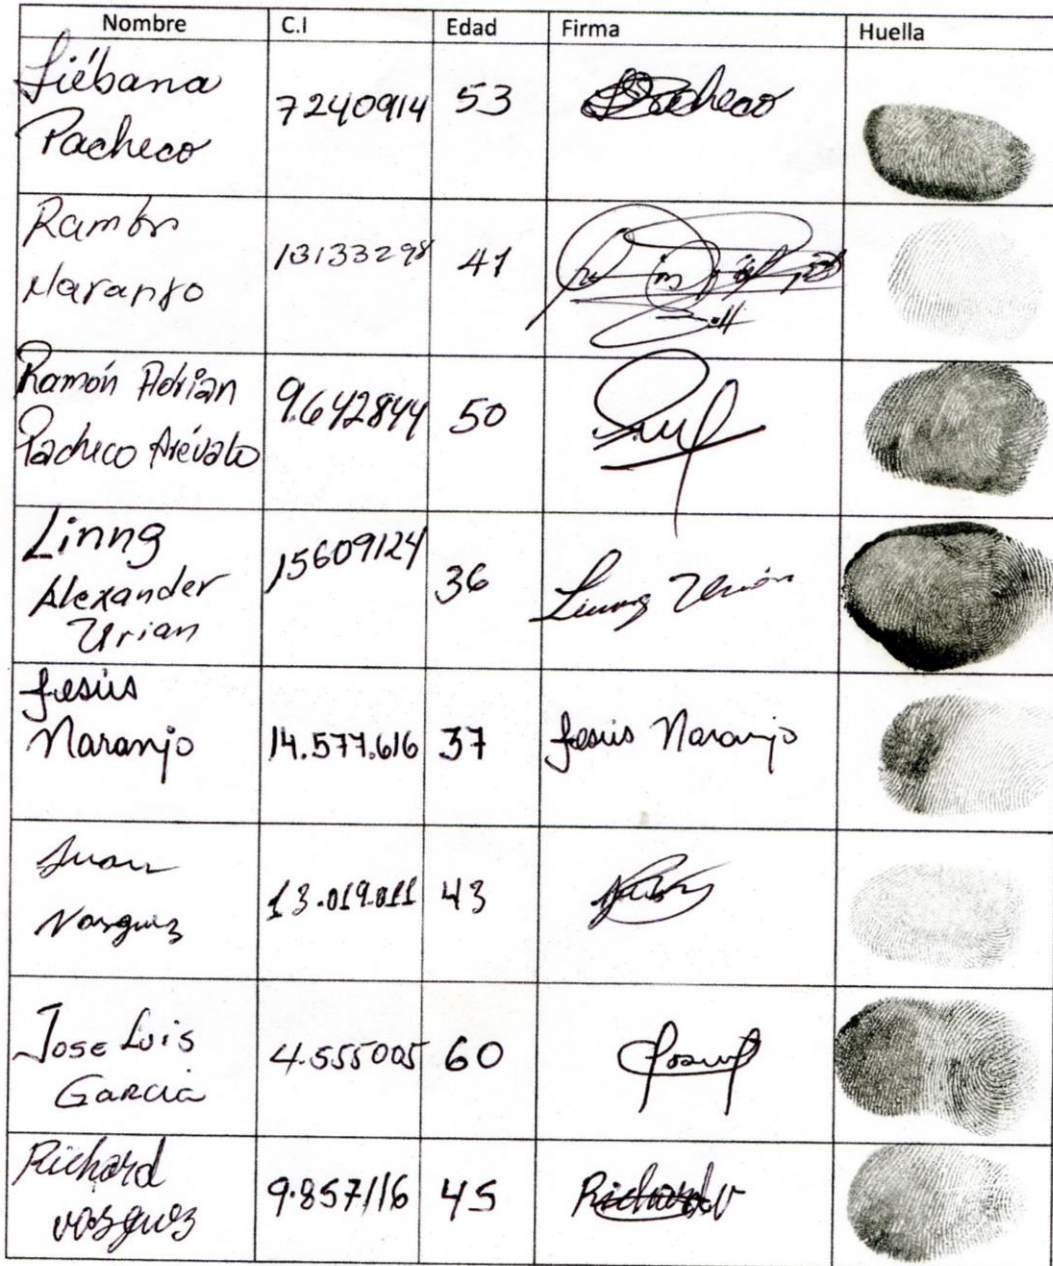 Nombre C.I Edad Firma Huella
Liébana
Pacheco
7240914 53 Pacheco
Ramón
Naranjo
13133298 41
Ramón Adrian
Pacheco Arévalo
9.642844 50
Linng
Alexander
Urian
15609124 36 Linng Urián
Jesús
Naranjo
14.577.616 37 Jesús Naranjo
Juan
Vasquez
13.019.011 43
Jose Luis
Garcia
4.555005 60
Richard
vasquez
9.857116 45 Richard V